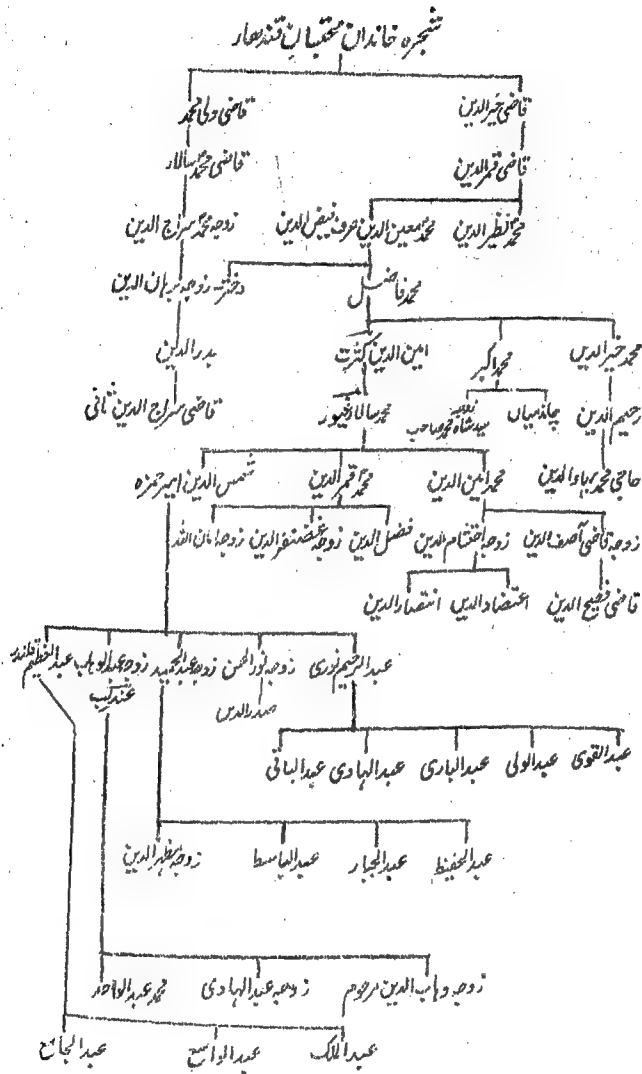 شجرہ خاندان محتسبانِ قندھار
قاضی خیرالدین قاضی ولی محمد
قاضی قمرالدین قاضی محمد سالار
محمد ظہیرالدین محمد معین الدین عرف فیض الدین زوجہ محمد سراج الدین
محمد فاضل دختر زوجہ برہان الدین
محمد خیرالدین محمد اکبر امین الدین کثرت بدرالدین
رحیم الدین چاند میاں سید شاہ محمد صاحب محمد سالار غیور قاضی سراج الدین ثانی
حاجی محمد بہاءالدین محمد امین الدین محمد قمرالدین شمس الدین امیر حمزہ
زوجہ قاضی آصف الدین زوجہ احتشام الدین فضل الدین زوجہ غضنفرالدین زوجہ امان اللہ
قاضی فصیح الدین اعتضادالدین انتصارالدین
عبدالرحیم نوری زوجہ نورالحسن زوجہ عبدالحمید زوجہ عبدالوہاب عندلیب عبدالعظیم
صدرالدین
عبدالقوی عبدالولی عبدالباری عبدالہادی عبدالباقی
عبدالحفیظ عبدالجبار عبدالباسط زوجہ مظہرالدین
زوجہ وہاب الدین مرحوم زوجہ عبدالہادی محمد عبدالواحد
عبدالملک عبدالواسع عبدالجامع